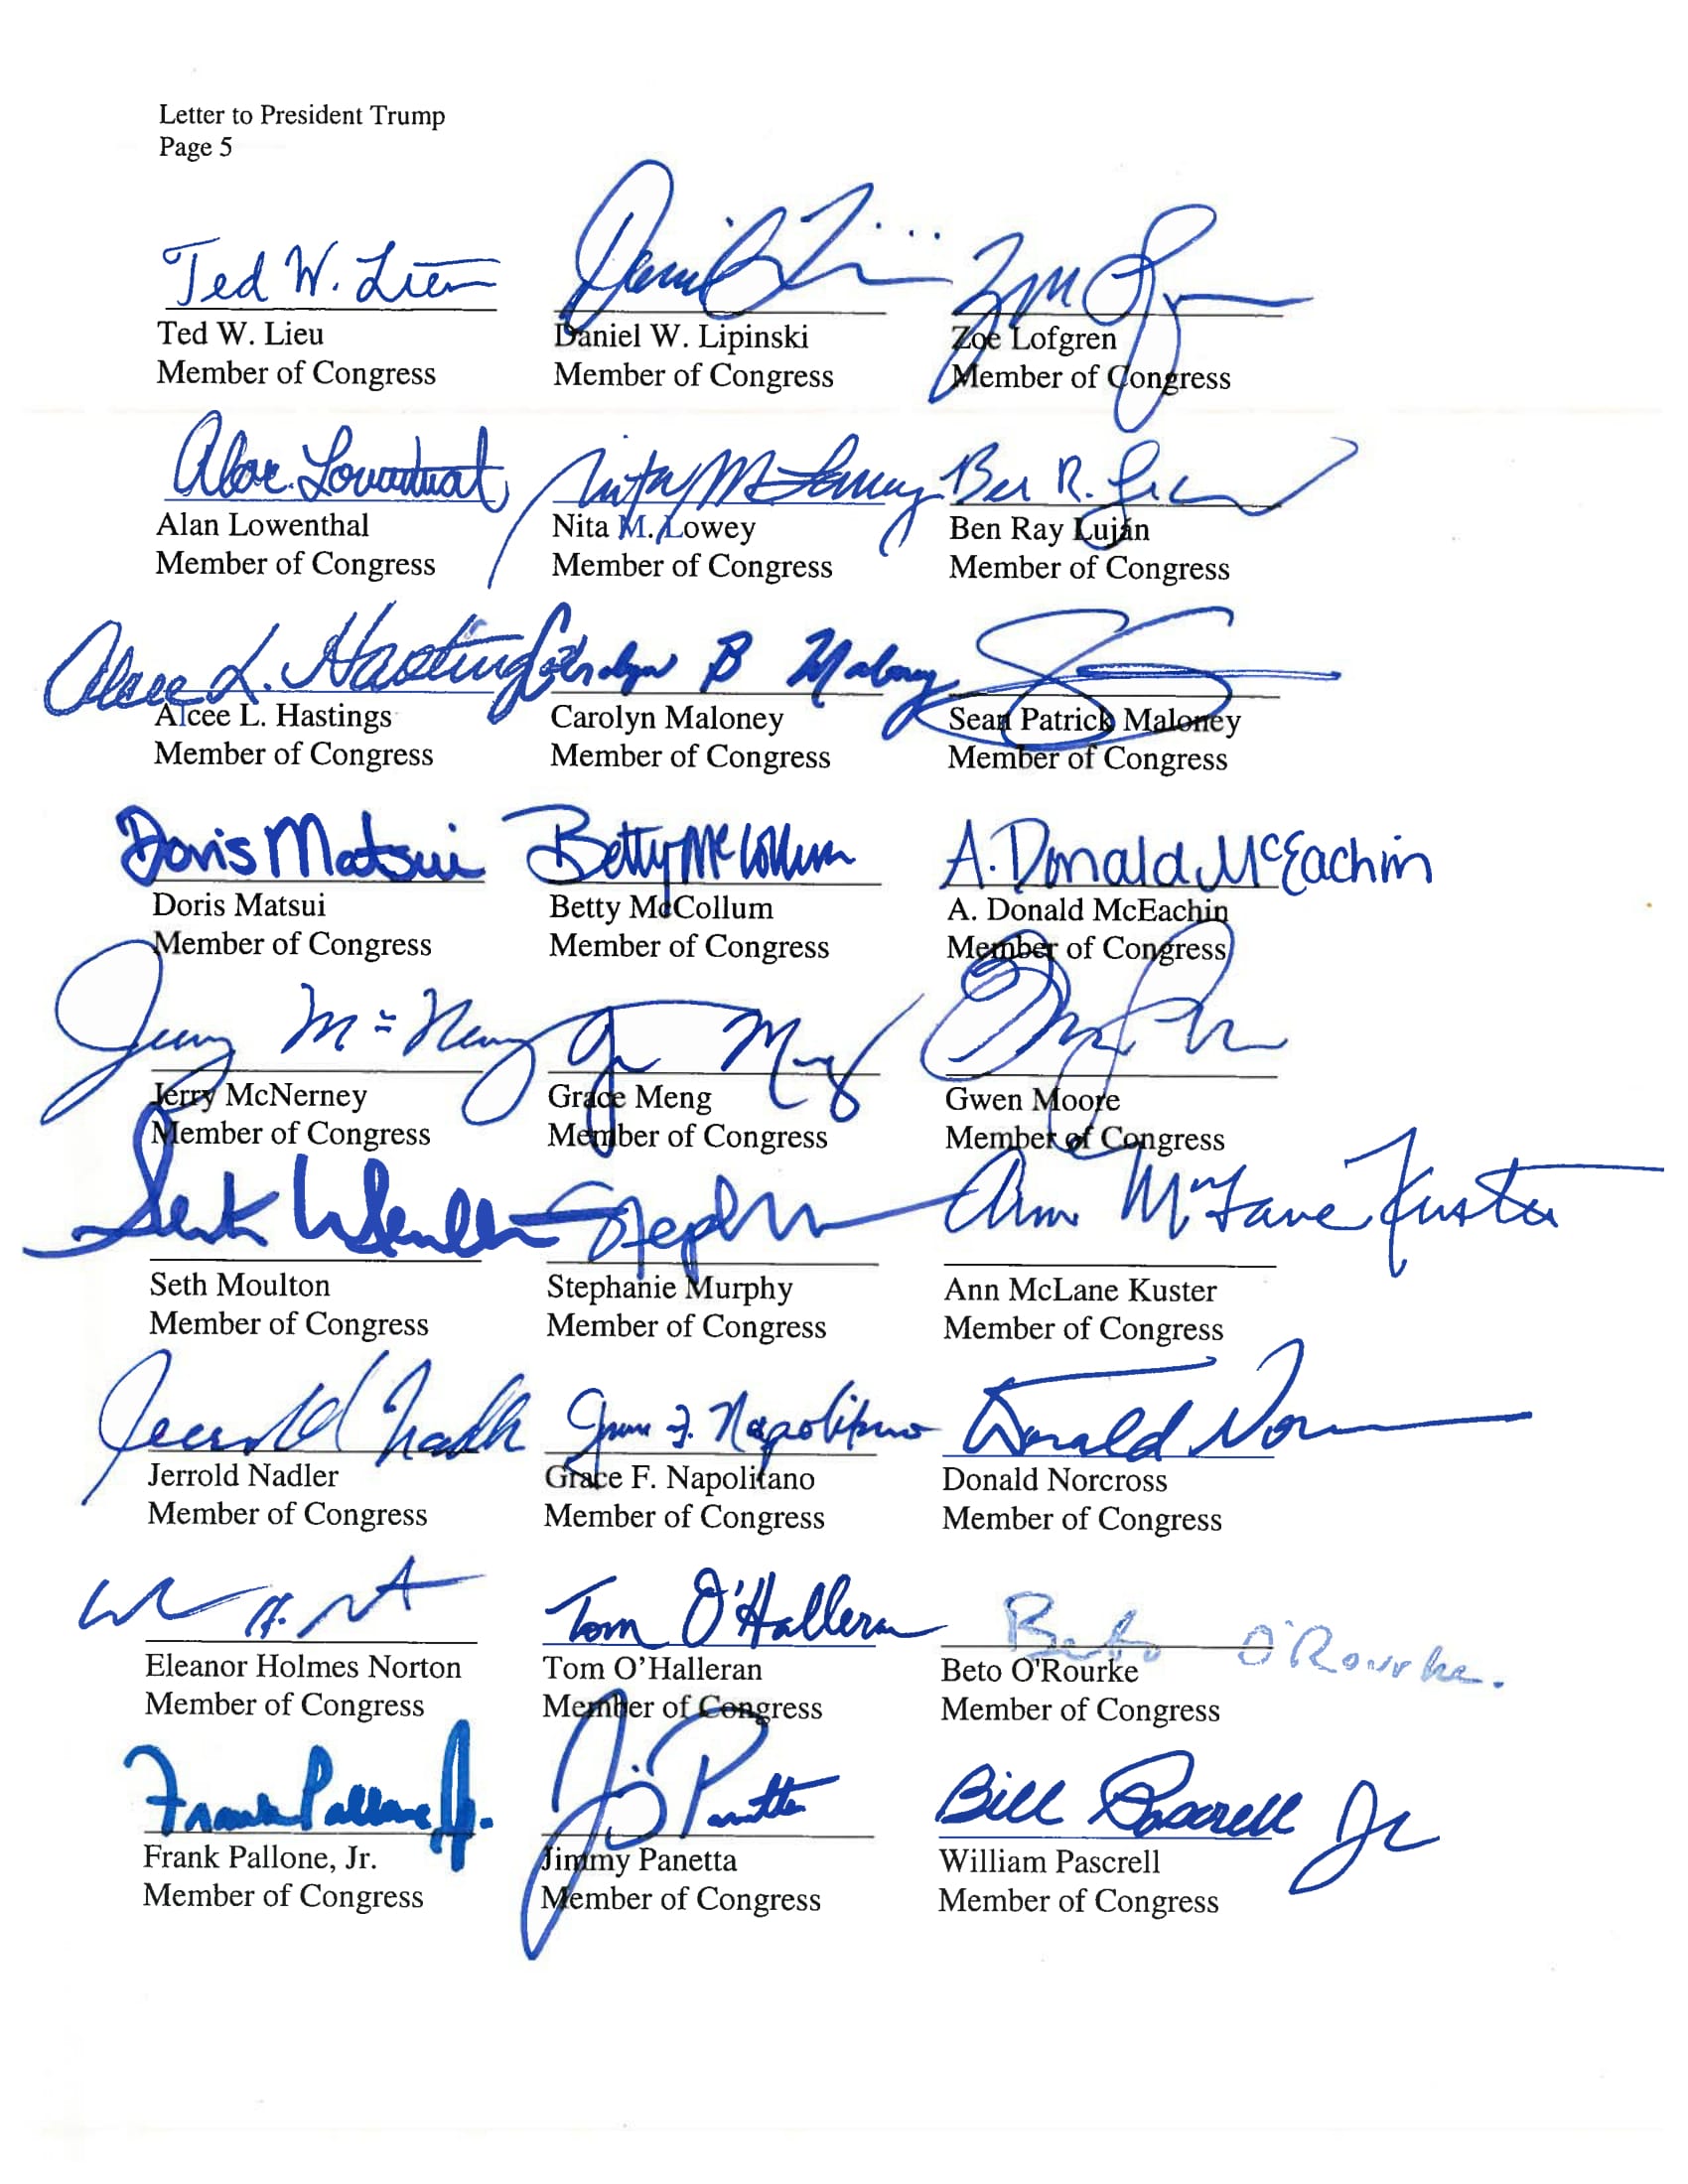 Letter to President Trump
Page 5
Ted W. Lieu
Ted W. Lieu Daniel W. Lipinski Zoe Lofgren
Member of Congress Member of Congress Member of Congress
Alan Lowenthal Nita M Lowey Ben R. Luján
Alan Lowenthal Nita M. Lowey Ben Ray Luján
Member of Congress Member of Congress Member of Congress
Alcee L. Hastings Carolyn B Maloney
Alcee L. Hastings Carolyn Maloney Sean Patrick Maloney
Member of Congress Member of Congress Member of Congress
Doris Matsui Betty McCollum A. Donald McEachin
Doris Matsui Betty McCollum A. Donald McEachin
Member of Congress Member of Congress Member of Congress
Jerry McNerney
Jerry McNerney Grace Meng Gwen Moore
Member of Congress Member of Congress Member of Congress
Ann McLane Kuster
Seth Moulton Stephanie Murphy Ann McLane Kuster
Member of Congress Member of Congress Member of Congress
Jerrold Nadler Grace F. Napolitano Donald Norcross
Jerrold Nadler Grace F. Napolitano Donald Norcross
Member of Congress Member of Congress Member of Congress
Tom O'Halleran Beto O'Rourke.
Eleanor Holmes Norton Tom O'Halleran Beto O'Rourke
Member of Congress Member of Congress Member of Congress
Frank Pallone Jr. Jimmy Panetta Bill Pascrell Jr
Frank Pallone, Jr. Jimmy Panetta William Pascrell
Member of Congress Member of Congress Member of Congress